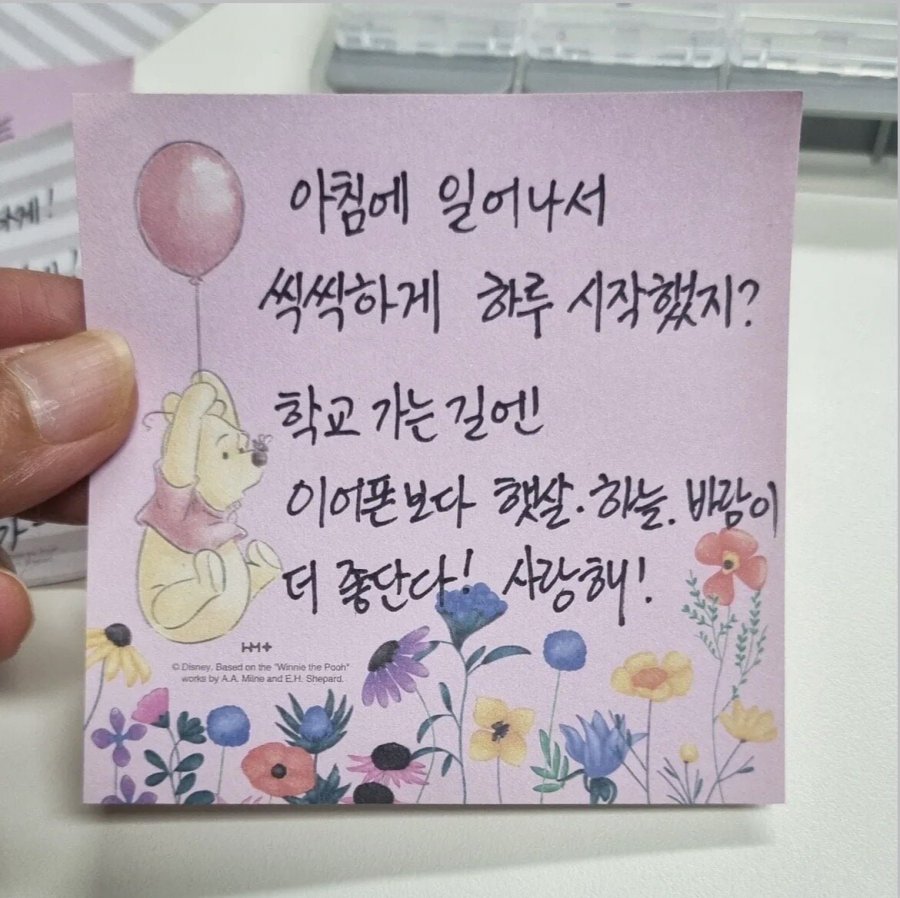 아침에 일어나서
씩씩하게 하루 시작했지?
학교 가는 길엔!
이어폰보다 햇살·하늘·바람이
더 좋단다! 사랑해!
HM+
© Disney. Based on the "Winnie the Pooh"
works by A.A. Milne and E.H. Shepard.